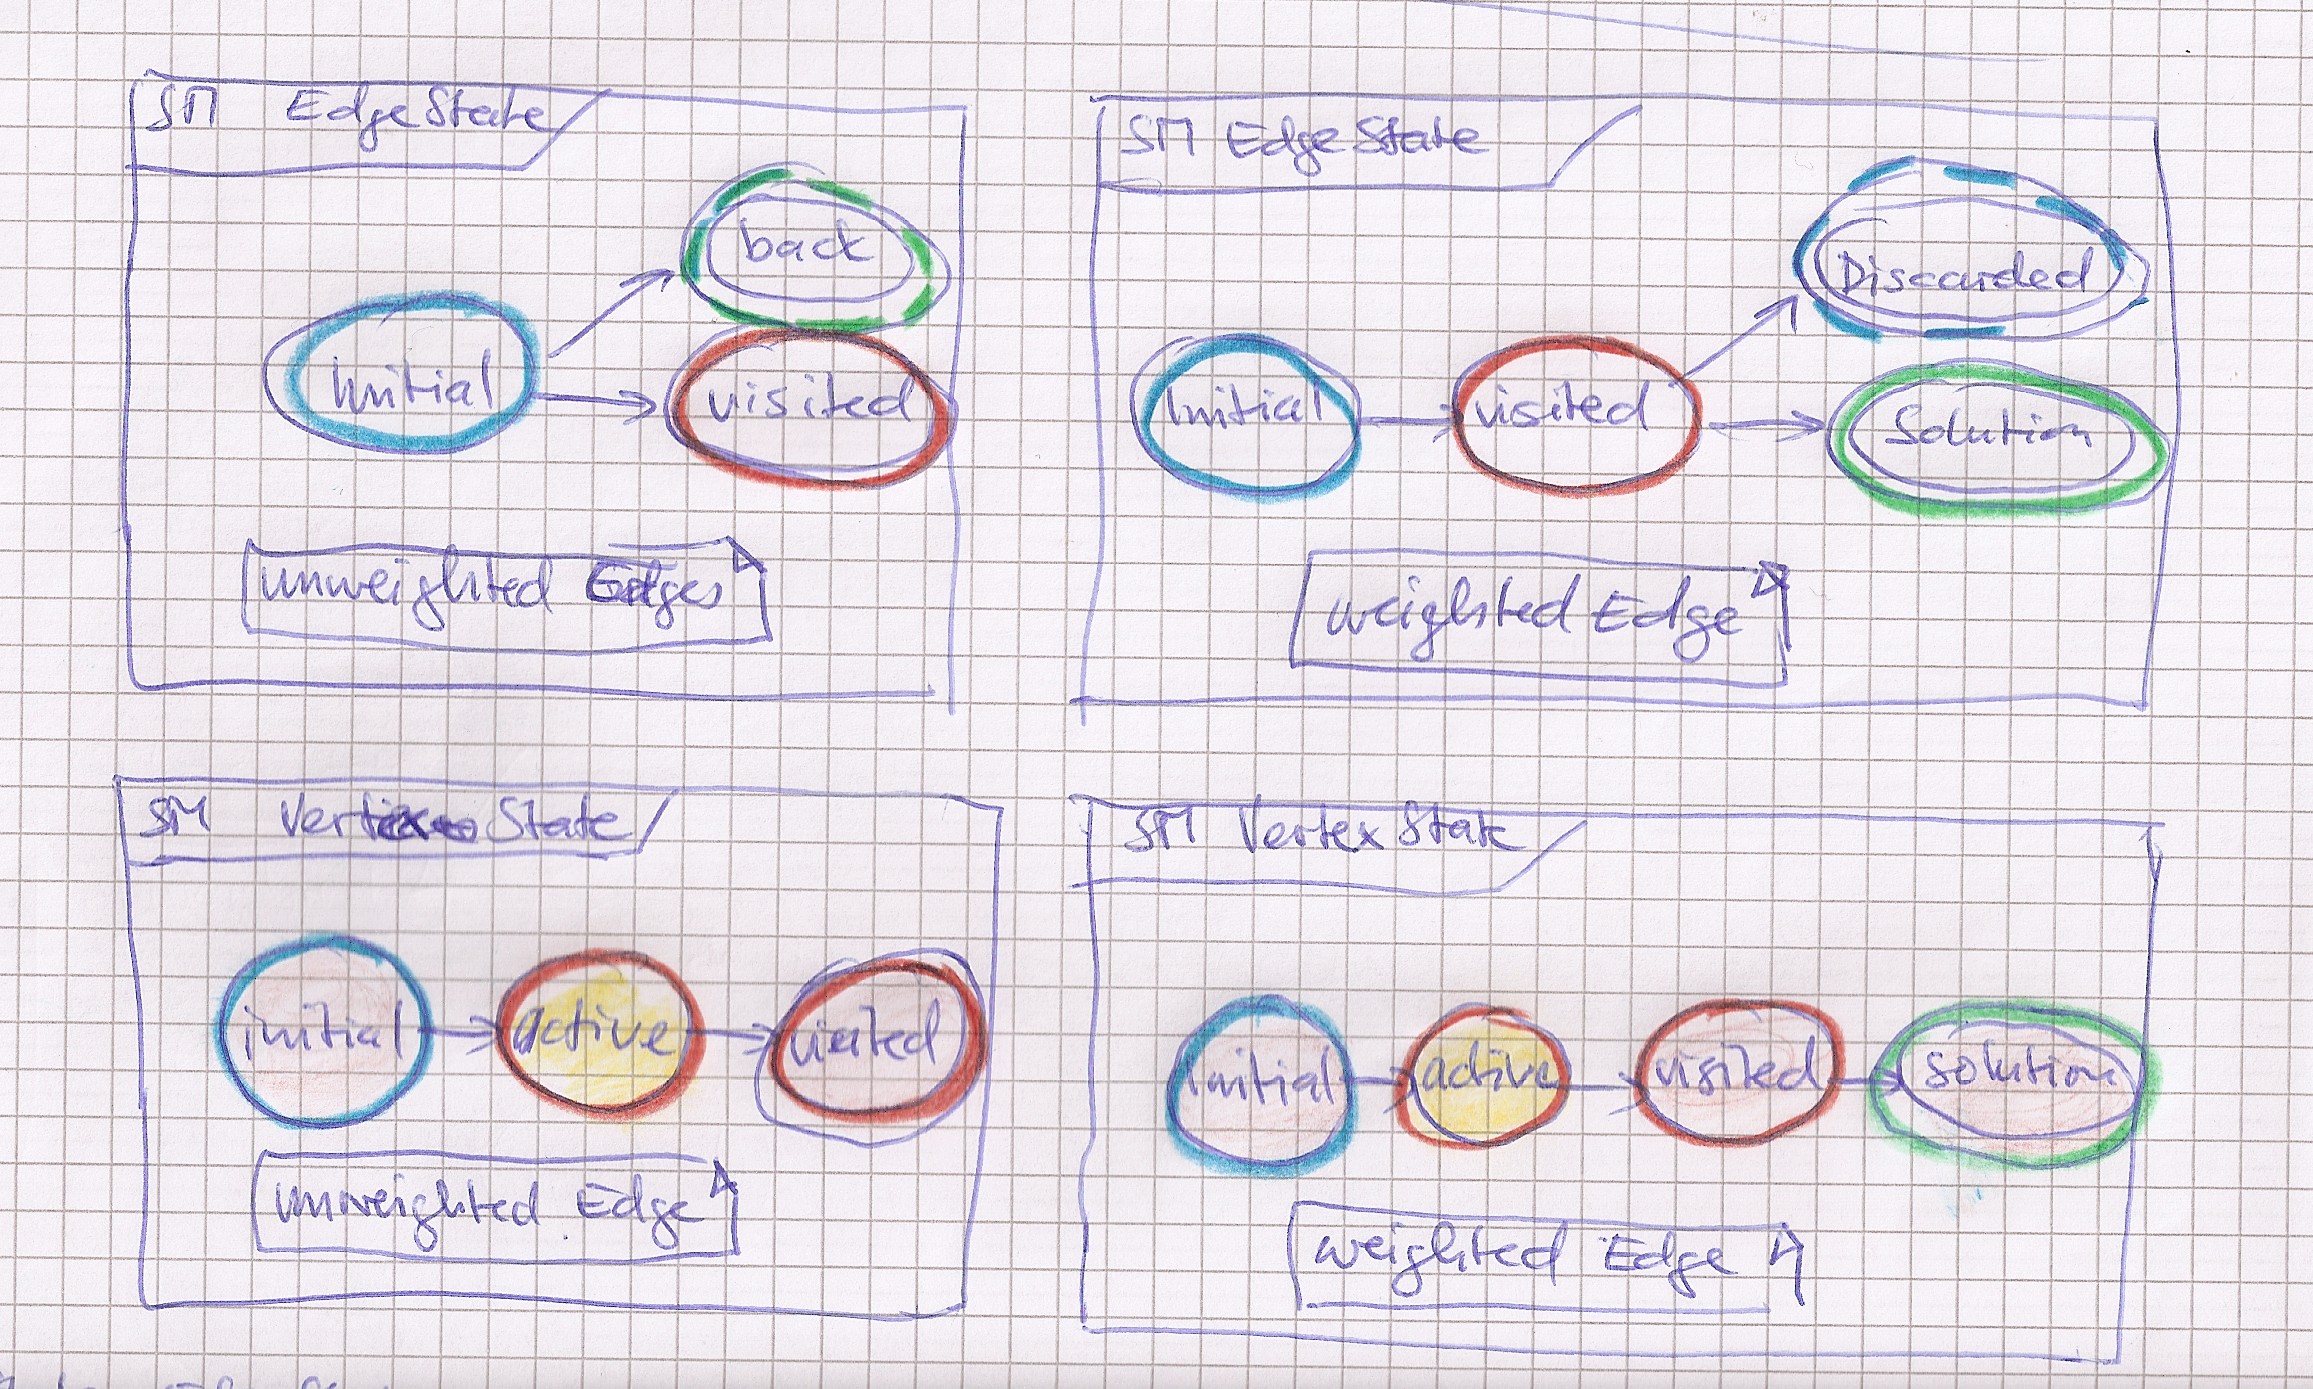 SM EdgeState
back
Initial
visited
unweighted Edges
SM EdgeState
Discarded
Initial
visited
Solution
weighted Edge
SM State
initial
active
visited
unweighted Edge
SM VertexState
Initial
active
visited
solution
weighted Edge